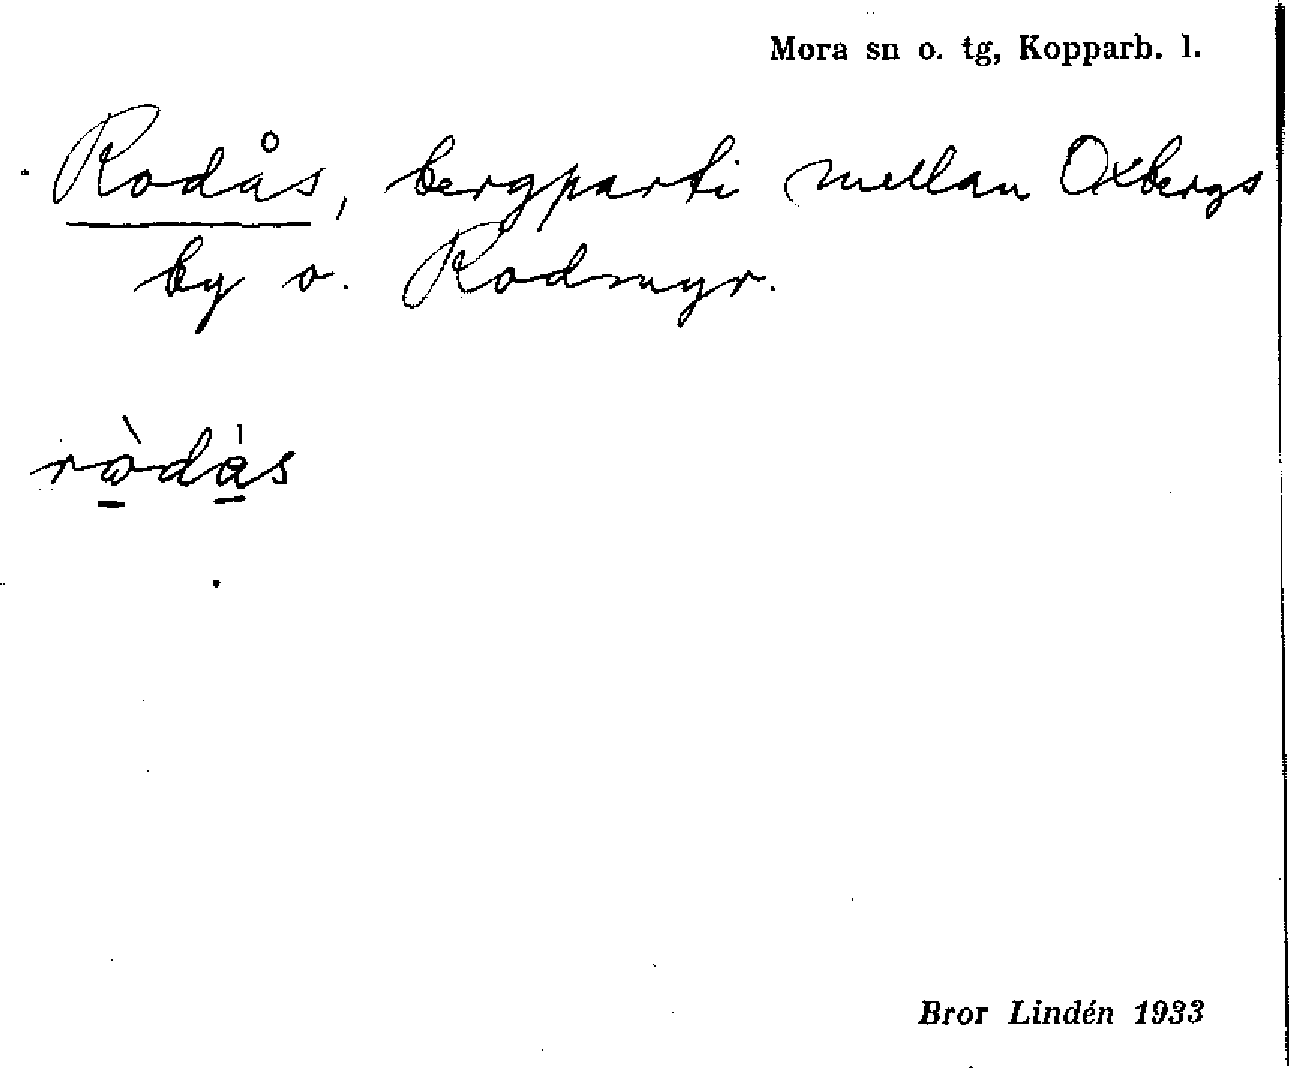 Mora sn o. tg, Kopparb. l.
Rodås, bergparti mellan Oxbergs
by o. Rodmyr.
ròdás
Bror Lindén 1933